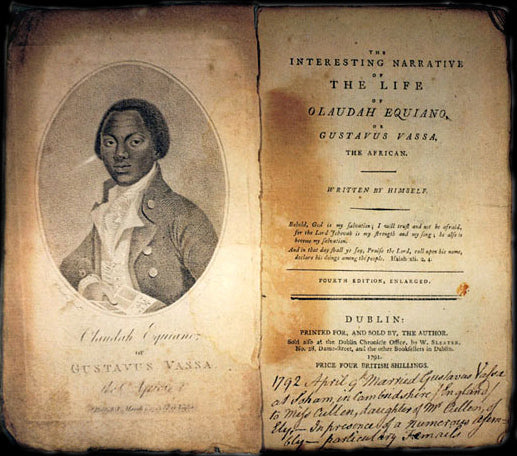 Olaudah Equiano;
or
GUSTAVUS VASSA,
the African
THE
INTERESTING NARRATIVE
OF
THE LIFE
OF
OLAUDAH EQUIANO,
OR
GUSTAVUS VASSA,
THE AFRICAN.
WRITTEN BY HIMSELF.
Behold, God is my salvation; I will trust and not be afraid,
for the Lord Jehovah is my strength and my song; he also is
become my salvation.
And in that day shall ye say, Praise the Lord, call upon his name,
declare his doings among the people. Isaiah xii. 2, 4.
FOURTH EDITION, ENLARGED.
DUBLIN:
PRINTED FOR, AND SOLD BY, THE AUTHOR.
Sold also at the Dublin Chronicle Office, by W. SLEATER,
No. 28, Dame-Street, and the other Booksellers in Dublin.
1791.
PRICE FOUR BRITISH SHILLINGS.
1792 April 9th Married Gustavas Vassa
at Soham, in Cambdshire, England,
to Miss Cullen, daughter of Mr Cullen, of
Ely,— In presence of a numerous assem-
bly — particulary Femaels